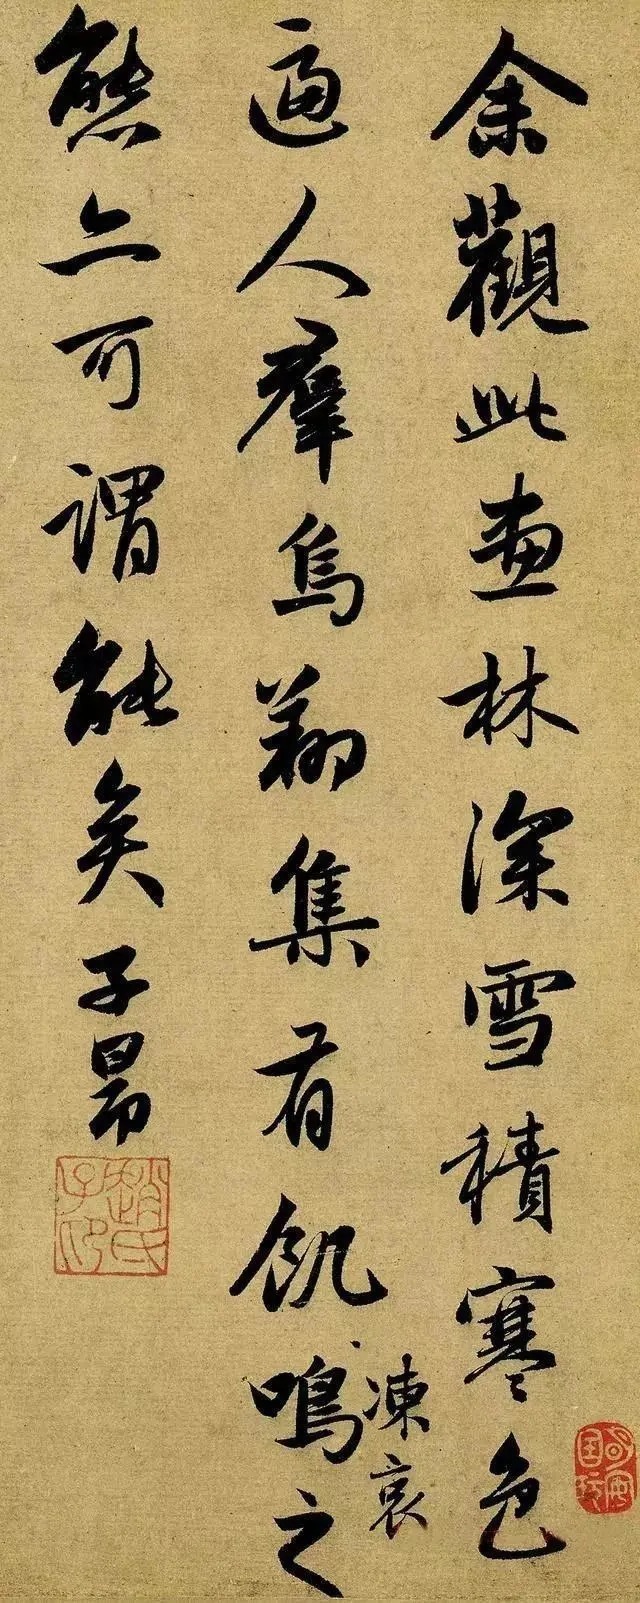 余觀此畫林深雪積寒色
逼人羣烏翔集有飢凍哀鳴之
態亦可謂能矣子昂
趙氏子昂